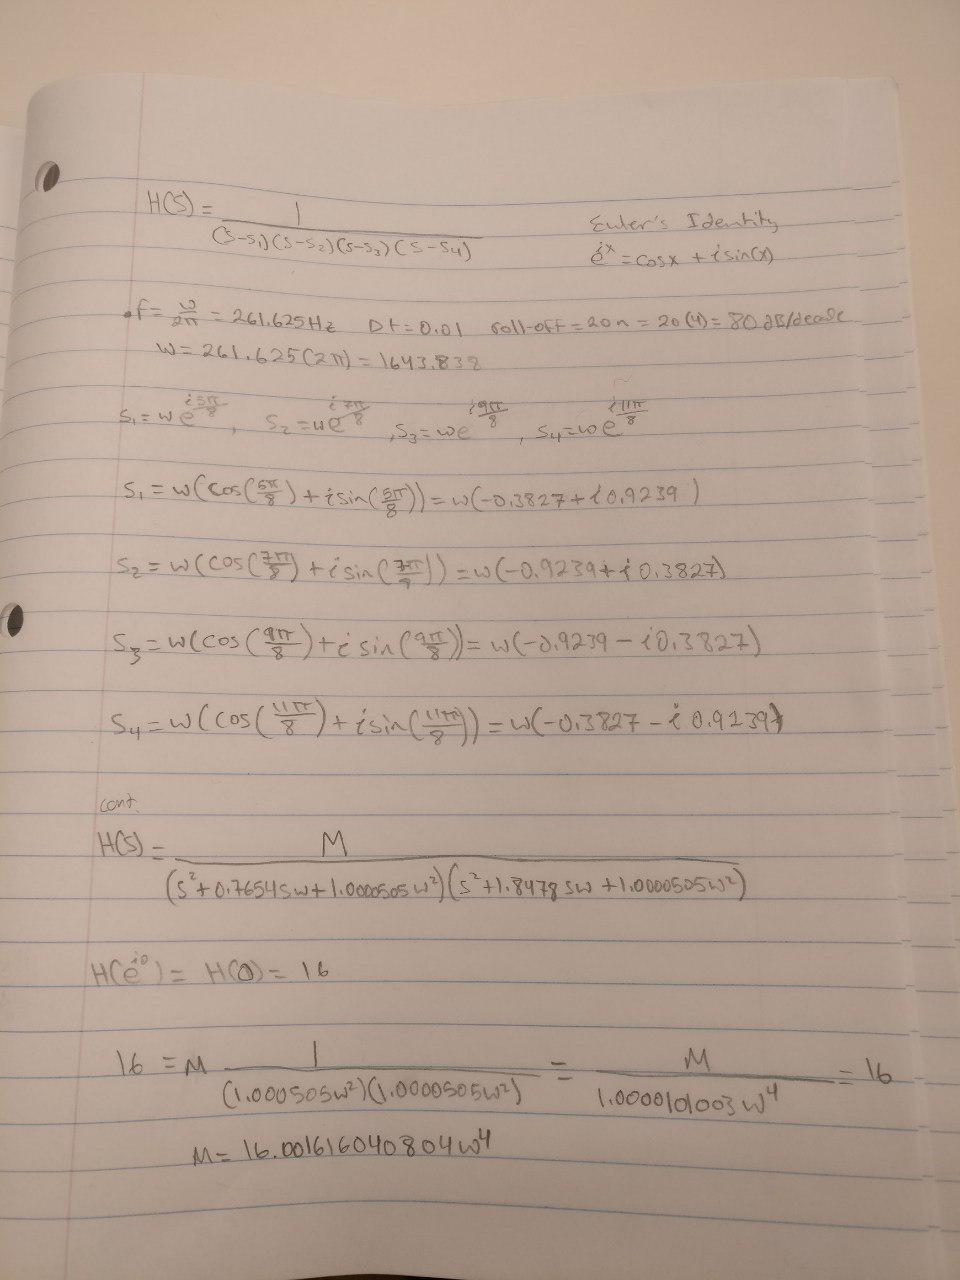 H(S) = 1 / (S-S₁)(S-S₂)(S-S₃)(S-S₄)
Euler's Identity
e^ix = cosx + i sin(x)
.f = w/2π = 261.625Hz Dt = 0.01 roll-off = 20n = 20(4) = 80 dB/decade
w = 261.625(2π) = 1643.838
S₁ = we^i5π/8, S₂ = we^i7π/8, S₃ = we^i9π/8, S₄ = we^i11π/8
S₁ = w(cos(5π/8) + i sin(5π/8)) = w(-0.3827 + i0.9239)
S₂ = w(cos(7π/8) + i sin(7π/9)) = w(-0.9239 + i0.3827)
S₃ = w(cos(9π/8) + i sin(9π/8)) = w(-0.9239 - i0.3827)
S₄ = w(cos(11π/8) + i sin(11π/8)) = w(-0.3827 - i0.9239)
cont.
H(S) = M / (S²+0.7654sw+1.0000505w²)(S²+1.8478sw+1.0000505w²)
H(e^i0) = H(0) = 16
16 = M 1 / (1.0000505w²)(1.0000505w²) = M / 1.0000101003w⁴ = 16
M = 16.001616040804w⁴